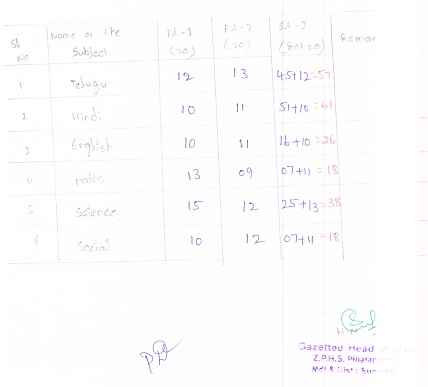 Sl NO Name of the Subject FA-1 (20) FA-2 (20) SA-I (80+20) Remar
1 Telugu 12 13 45+12=57
2 Hindi 10 11 51+10=61
3 English 10 11 16+10=26
4 Maths 13 09 07+11=18
5 Science 15 12 25+13=38
6 Social 10 12 07+11=18
Gazetted Head
Z.P.H.S.